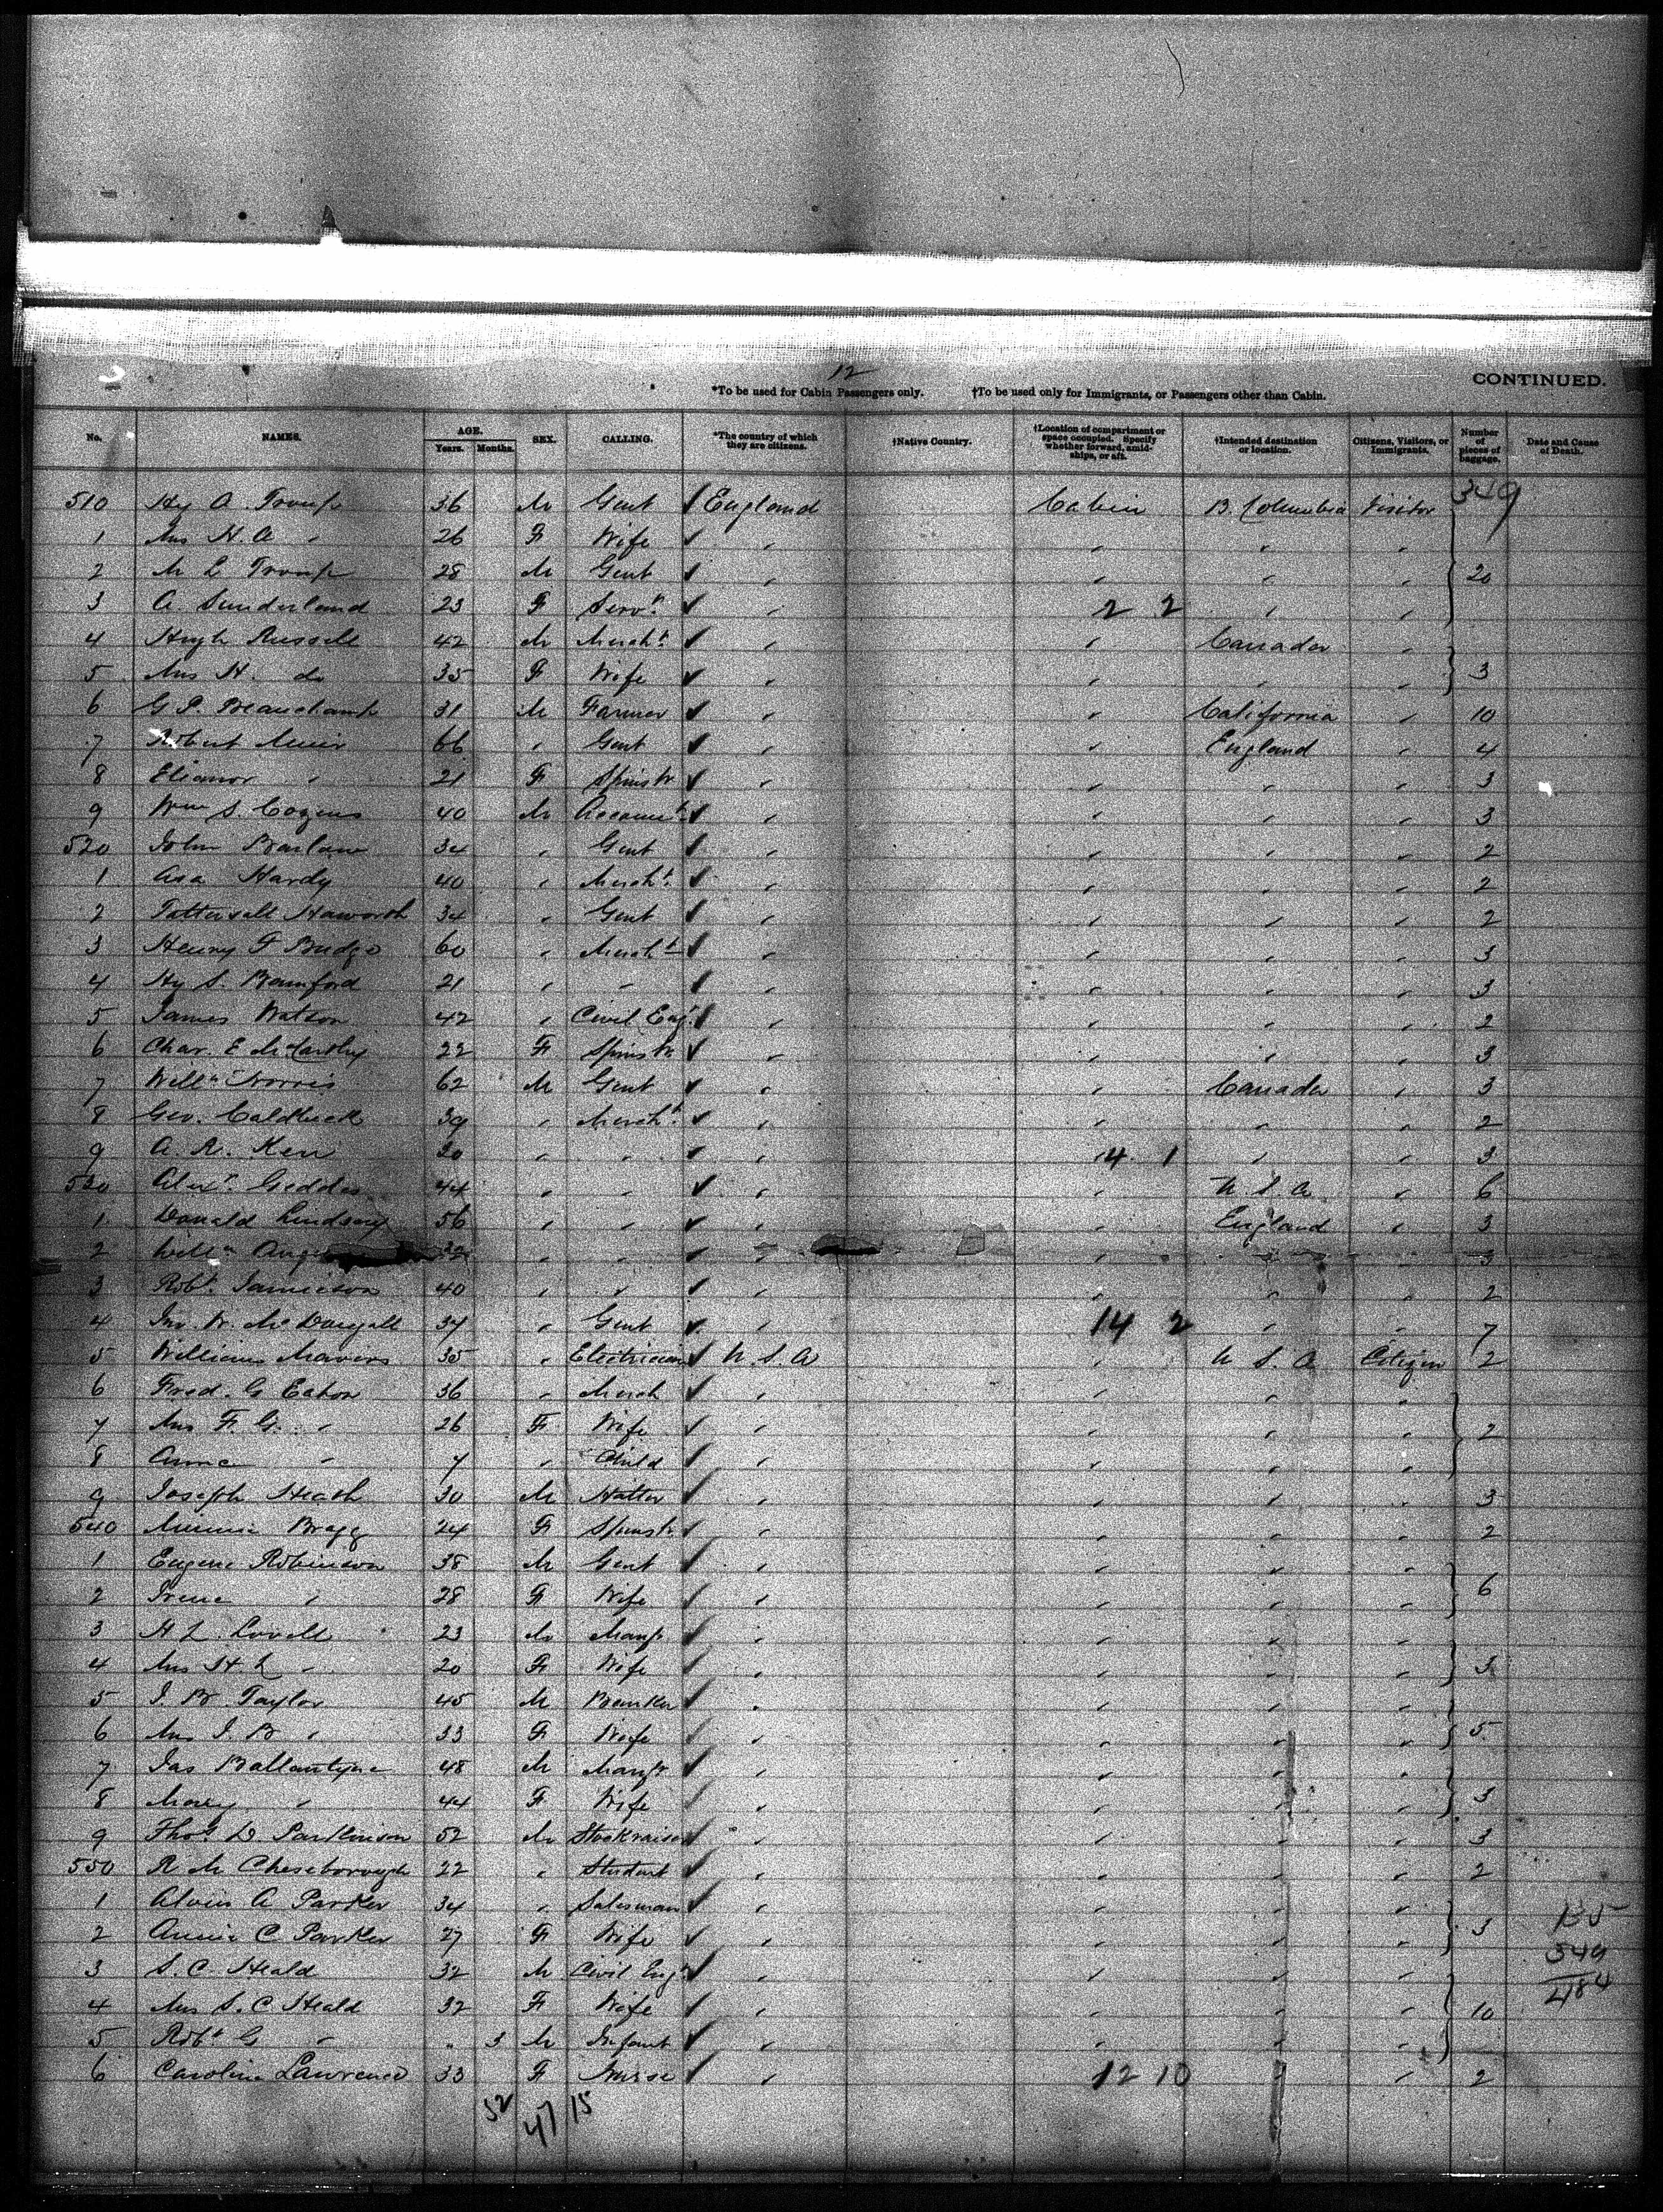 12
CONTINUED.
*To be used for Cabin Passengers only. †To be used only for Immigrants, or Passengers other than Cabin.
No. NAMES. AGE. Years. Months. SEX. CALLING. *The country of which they are citizens. †Native Country. †Location of compartment or space occupied. Specify whether forward, amidships, or aft. †Intended destination or location. Citizens, Visitors, or Immigrants. Number of pieces of baggage. Date and Cause of Death.
349
510 Hy A. Troup 36 M Gent ✓ England Cabin B. Columbia Visitor
1 Mrs H. A " 26 F Wife ✓ " " " "
2 M L Troup 28 M Gent ✓ " " " " 20
3 A. Sunderland 23 F Servt ✓ " 2 2 " "
4 Hugh Russell 42 M Mercht ✓ " " Canada "
5 Mrs H. do 35 F Wife ✓ " " " " 3
6 G. P. Beauchamp 31 M Farmer ✓ " " California " 10
7 Robert Muir 66 " Gent ✓ " " England " 4
8 Eleanor " 21 F Spinstr ✓ " " " " 3
9 Wm S. Cozens 40 M Accountt ✓ " " " " 3
520 John Barlow 34 " Gent ✓ " " " " 2
1 Asa Hardy 40 " Mercht ✓ " " " " 2
2 Tattersall Haworth 34 " Gent ✓ " " " " 2
3 Henry F Budge 60 " Mercht ✓ " " " " 3
4 Hy S. Bamford 21 " " ✓ " " " " 3
5 James Watson 42 " Civil Eng. ✓ " " " " 2
6 Char. E McCarthy 22 F Spinstr ✓ " " " " 3
7 Willm Norris 62 M Gent ✓ " " Canada " 3
8 Geo. Caldbeck 39 " Mercht ✓ " " " " 2
9 A. R. Kerr 30 " " ✓ " 4 1 " " 3
530 Alexr. Geddes 44 " " ✓ " " U. S. A " 6
1 Donald Lindsay 56 " " ✓ " " England " 3
2 Willm 32 " " ✓ " " " " 3
3 Robt. Jamieson 40 " " ✓ " " " " 2
4 Jno. W. McDougall 34 " Gent ✓ " 14 2 " " 7
5 William Mavers 35 " Electrician ✓ U. S. A " U S. A Citizen 2
6 Fred. G Eaton 36 " Merch ✓ " " " "
7 Mrs F. G. " 26 F Wife ✓ " " " " 2
8 Anna " 7 " Child ✓ " " " "
9 Joseph Heath 30 M Hatter ✓ " " " " 3
540 Minnie Bragg 24 F Spinstr ✓ " " " " 2
1 Eugene Robinson 38 M Gent ✓ " " " "
2 Irene " 28 F Wife ✓ " " " " 6
3 H L. Lovell 23 M Manfr ✓ " " " "
4 Mrs H. L " 20 F Wife ✓ " " " " 3
5 J. B. Taylor 45 M Banker ✓ " " " "
6 Mrs J. B " 33 F Wife ✓ " " " " 5
7 Jas Ballantyne 48 M Manfr ✓ " " " "
8 Mary " 44 F Wife ✓ " " " " 3
9 Thos. D Parkinson 52 M Stockraiser ✓ " " " " 3
550 R M Cheseborough 22 " Student ✓ " " " " 2
1 Alvin A Parker 34 " Salesman ✓ " " " "
2 Annie C Parker 27 F Wife ✓ " " " " 3
3 S. C. Heald 32 M Civil Engr ✓ " " " "
4 Mrs S. C Heald 32 F Wife ✓ " " " " 10
5 Robt G " " 3 M Infant ✓ " " " "
6 Caroline Lawrence 33 F Nurse ✓ " 12 10 " " 2
135
349
484
52 47 15